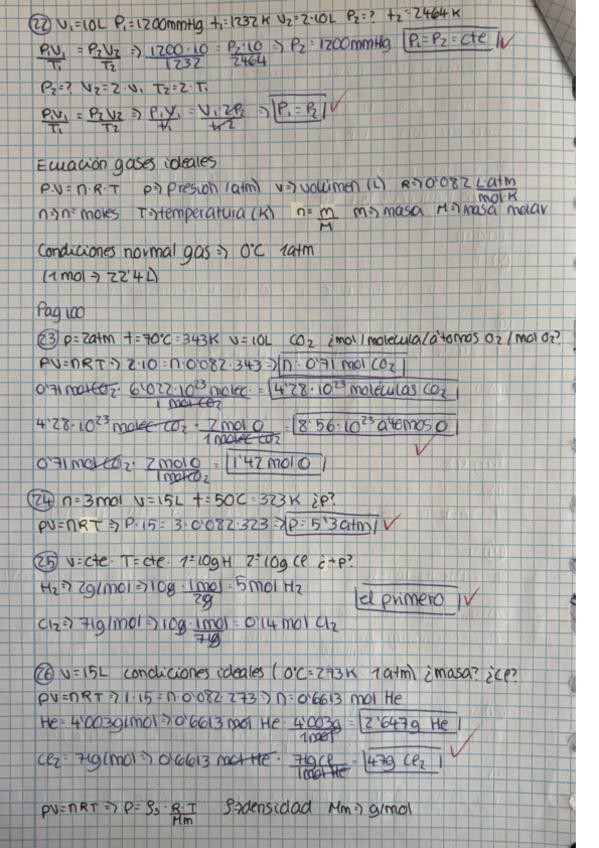 22 V₁=10L P₁=1200mmHg t₁=1232K V₂=2·10L P₂=? t₂=2464K
P₁V₁/T₁ = P₂V₂/T₂ ⇒ 1200·10/1232 = P₂·10/2464 ⇒ P₂=1200mmHg P₁=P₂=cte
P₂=? V₂=2·V₁ T₂=2·T₁
P₁V₁/T₁ = P₂V₂/T₂ ⇒ P₁V₁/t₁ = V₁2P₂/t₁·2 ⇒ P₁=P₂
Ecuación gases ideales
P·V=n·R·T p⇒presion (atm) v⇒volúmen (L) R⇒0'082 L·atm/mol·K
n⇒nº moles T⇒temperatura (K) n=m/M m⇒masa M⇒masa molar
Condiciones normal gas ⇒ 0ºC 1atm
(1mol ⇒ 22'4L)
Pag 100
23 P=2atm t=70ºC=343K V=10L CO₂ ¿mol/molecula/átomos O₂/mol O₂?
PV=nRT ⇒ 2·10=n·0'082·343 ⇒ n=0'71 mol CO₂
0'71 mol CO₂ · 6'022·10²³ molec/1 mol CO₂ = 4'28·10²³ moléculas CO₂
4'28·10²³ molec CO₂ · 2 mol O/1 molec CO₂ = 8'56·10²³ átomos O
0'71 mol CO₂ · 2 mol O/1 mol CO₂ = 1'42 mol O
24 n=3mol V=15L t=50C=323K ¿P?
PV=nRT ⇒ P·15=3·0'082·323 ⇒ P=5'3atm
25 V=cte · T=cte · 1=10g H 2=10g Cl ¿+P?
H₂ ⇒ 2g/mol ⇒ 10g · 1mol/2g = 5mol H₂
el primero
Cl₂ ⇒ 71g/mol ⇒ 10g · 1mol/71g = 0'14 mol Cl₂
26 V=15L condiciones ideales (0ºC=273K 1atm) ¿masa? ¿Cl?
PV=nRT ⇒ 1·15=n·0'082·273 ⇒ n=0'6613 mol He
He=4'003g/mol ⇒ 0'6613 mol He · 4'003g/1mol = 2'647g He
Cl₂=71g/mol ⇒ 0'6613 mol He · 71g Cl/1mol He = 47g Cl₂
PV=nRT ⇒ P=ρ·R·T/Mm ρ⇒densidad Mm⇒g/mol